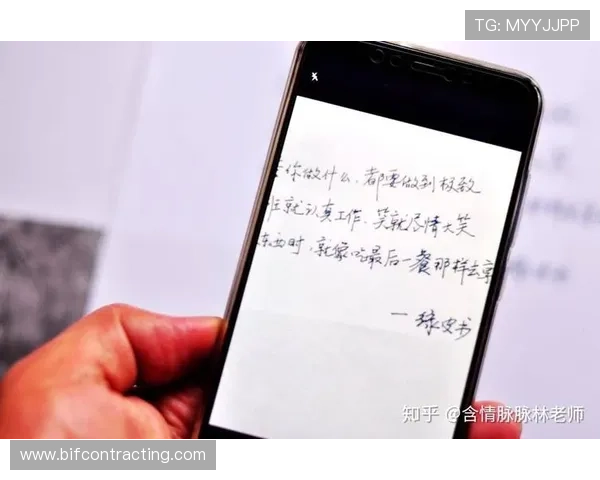 TG: MYYJJPP
你做什么,都要做到极致
班就认真工作、笑就尽情大笑
东西时,就像吃最后一餐那样去享
—绿皮书
知乎 @含情脉脉林老师
www.bifcontracting.com